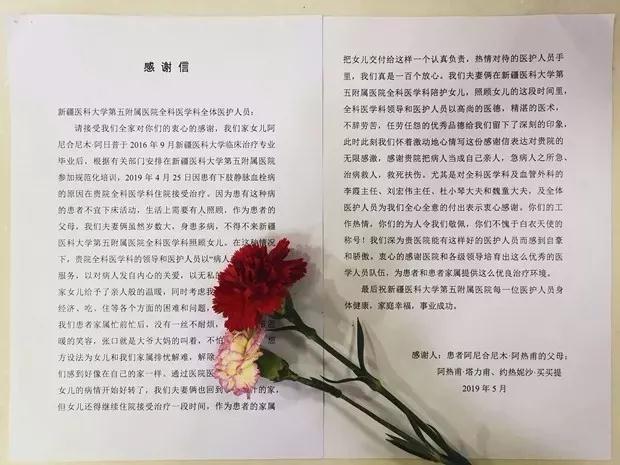 感谢信
新疆医科大学第五附属医院全科医学科全体医护人员：
请接受我们全家对你们的衷心的感谢，我们家女儿阿
尼合尼木·阿日普于 2016 年 9 月新疆医科大学临床治疗专业
毕业后，根据有关部门安排在新疆医科大学第五附属医院
参加规范化培训，2019 年 4 月 25 日因患有下肢静脉血栓病
的原因在贵院全科医学科住院接受治疗。因为患有这种病
的患者不宜下床活动，生活上需要有人照顾，作为患者的
父母，我们夫妻俩虽然岁数大，身患多病，不得不来新疆
医科大学第五附属医院全科医学科照顾女儿。在这种情况
下，贵院全科医学科的领导和医护人员以“病人
服务，以对病人发自内心的关爱，以无私的
家女儿给予了亲人般的温暖，同时考虑我
经济、吃、住等各个方面的困难和问题，
我们患者家属忙前忙后，没有一丝不耐烦，
暖的笑容，张口就是大爷大妈的叫着，不怕
方设法为女儿和我们家属排忧解难，解除
们感到好像在自己的家一样。通过医院医
女儿的病情开始好转了，我们夫妻俩也回到 的家，
但女儿还得继续住院接受治疗一段时间，作为患者的家属
把女儿交付给这样一个认真负责，热情对待的医护人员手
里，我们真是一百个放心。我们夫妻俩在新疆医科大学第
五附属医院全科医学科陪护女儿，照顾女儿的这段时间里，
全科医学科领导和医护人员以高尚的医德，精湛的医术，
不辞劳苦，任劳任怨的优秀品德给我们留下了深刻的印象，
此时此刻我们怀着激动地心情写这份感谢信表达对贵院的
无限感激，感谢贵院把病人当成自己亲人，急病人之所急、
治病救人，救死扶伤。尤其是对全科医学科及血管外科的
李霞主任、刘宏伟主任、杜小琴大夫和魏童大夫，及全体
医护人员为我们全心全意的付出表示衷心感谢。你们的工
作热情，你们的为人令我们敬佩，你们不愧于白衣天使的
称号！我们深为贵医院能有这样好的医护人员而感到自豪
和骄傲，衷心的感谢医院和各级领导培育出这么优秀的医
学人员队伍，为患者和患者家属提供这么优良治疗环境。
最后祝新疆医科大学第五附属医院每一位医护人员身
体健康，家庭幸福，事业成功。
感谢人：患者阿尼合尼木·阿热甫的父母：
阿热甫·塔力甫、约热妮沙·买买提
2019 年 5 月